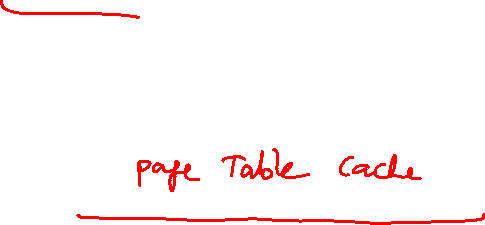 page Table Cache